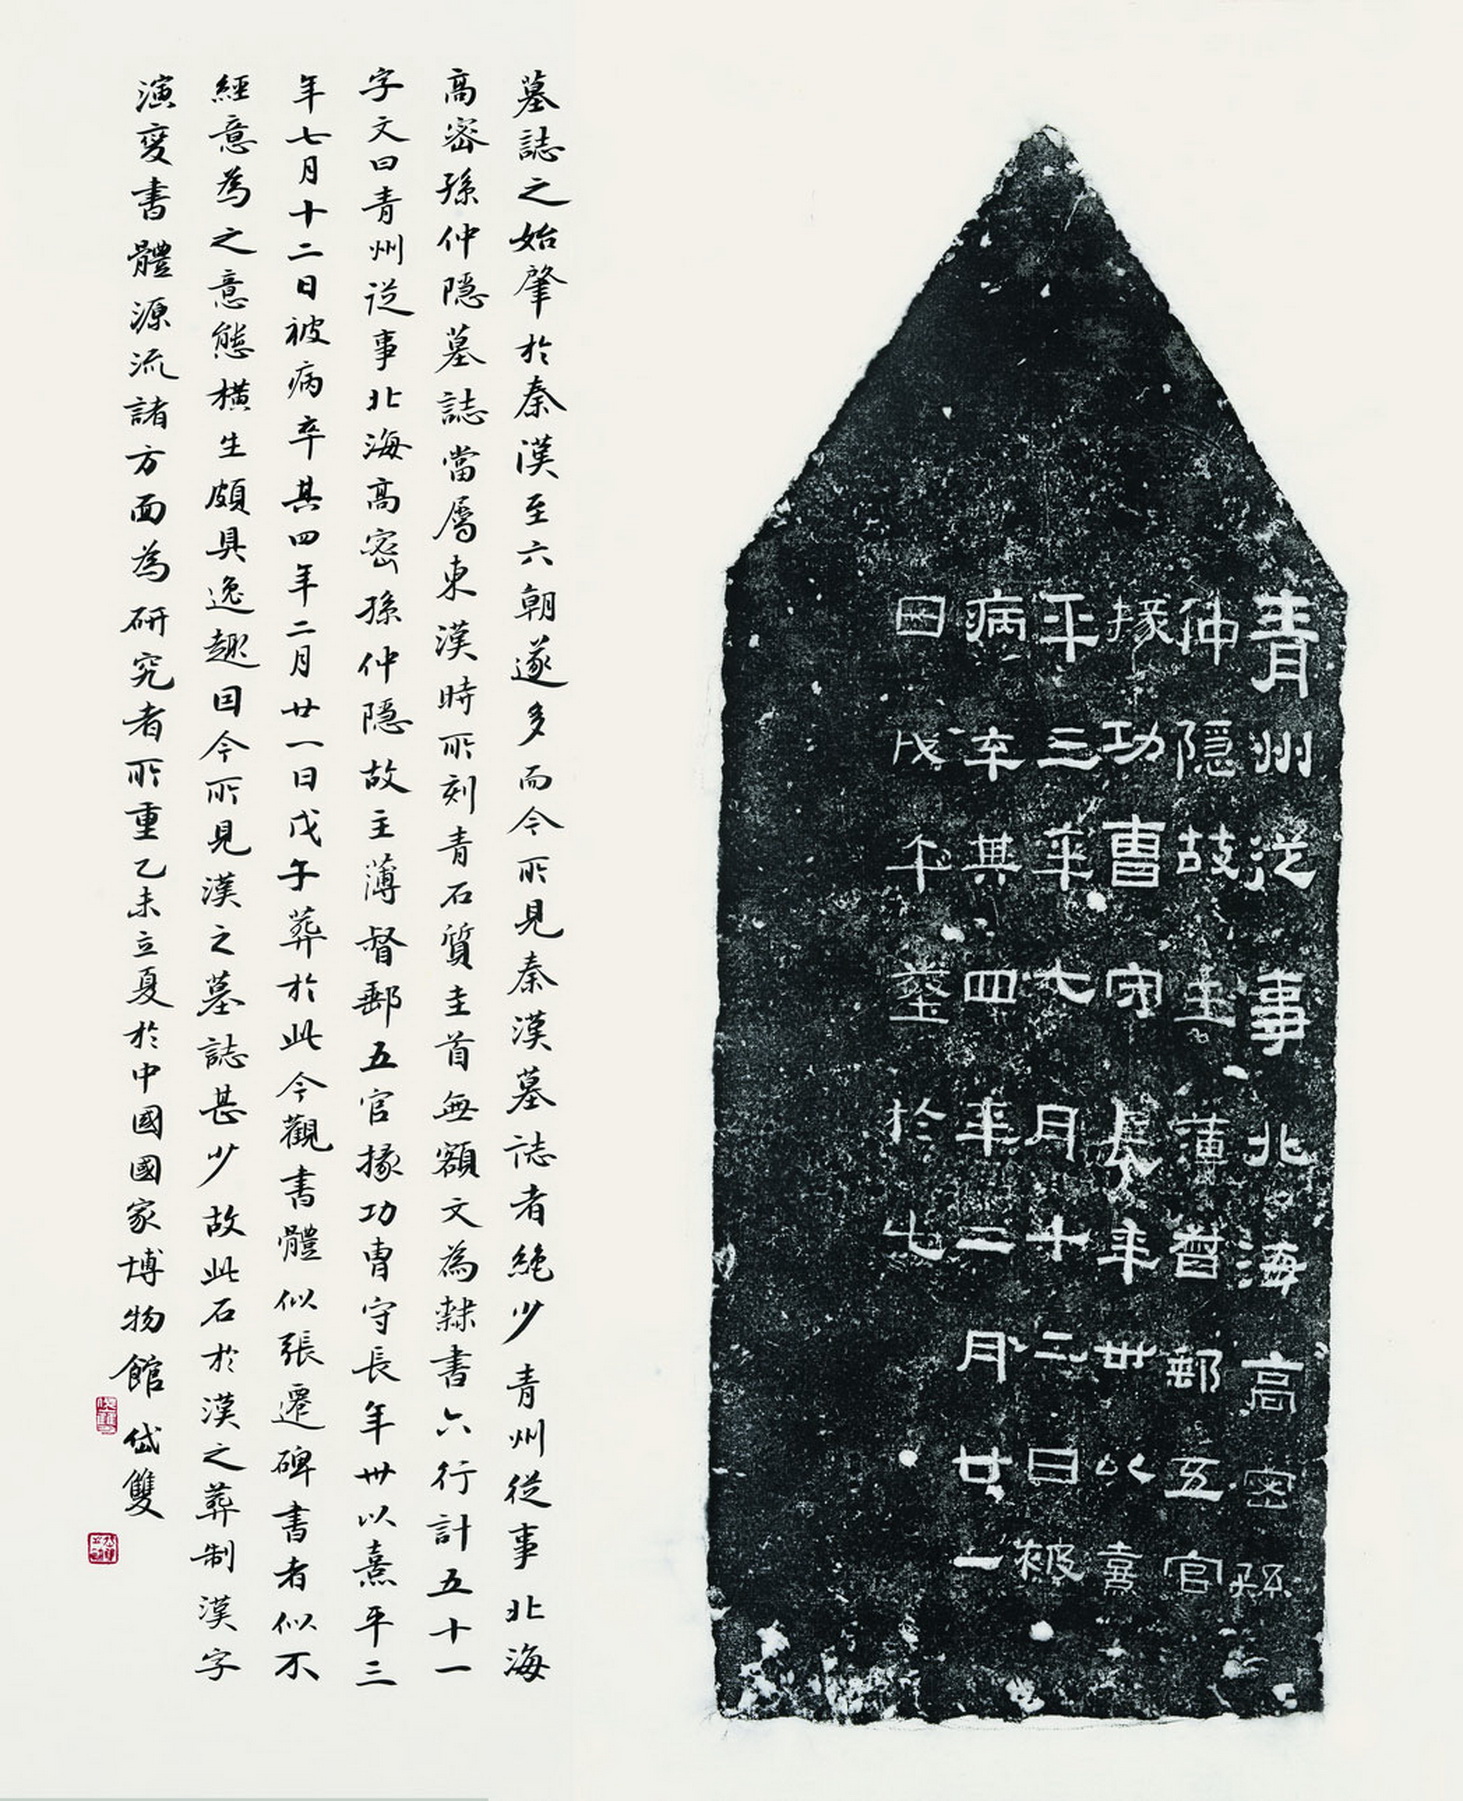 青州從事北海高密孫
仲隱故主薄督郵五官
掾功曹守長年卅以熹
平三年七月十二日被
病卒其四年二月廿一
日戊午葬於此
墓誌之始肇於秦漢至六朝遂多而今所見秦漢墓誌者絶少青州從事北海
高密孫仲隱墓誌當屬東漢時所刻青石質圭首無額文為隸書六行計五十一
字文曰青州從事北海高密孫仲隱故主薄督郵五官掾功曹守長年卅以熹平三
年七月十二日被病卒其四年二月廿一日戊午葬於此今觀書體似張遷碑書者似不
經意為之意態橫生頗具逸趣因今所見漢之墓誌甚少故此石於漢之葬制漢字
演變書體源流諸方面為研究者所重乙未立夏於中國國家博物館岱雙